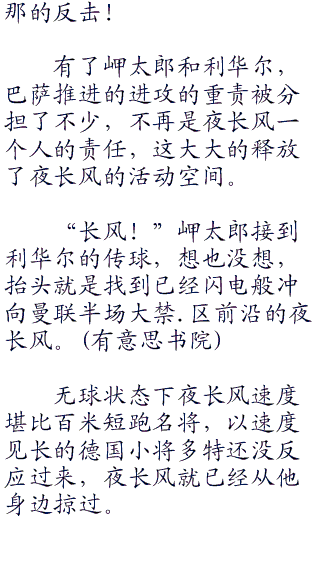 那的反击！
有了岬太郎和利华尔，
巴萨推进的进攻的重责被分
担了不少，不再是夜长风一
个人的责任，这大大的释放
了夜长风的活动空间。
“长风！”岬太郎接到
利华尔的传球，想也没想，
抬头就是找到已经闪电般冲
向曼联半场大禁.区前沿的夜
长风。(有意思书院)
无球状态下夜长风速度
堪比百米短跑名将，以速度
见长的德国小将多特还没反
应过来，夜长风就已经从他
身边掠过。